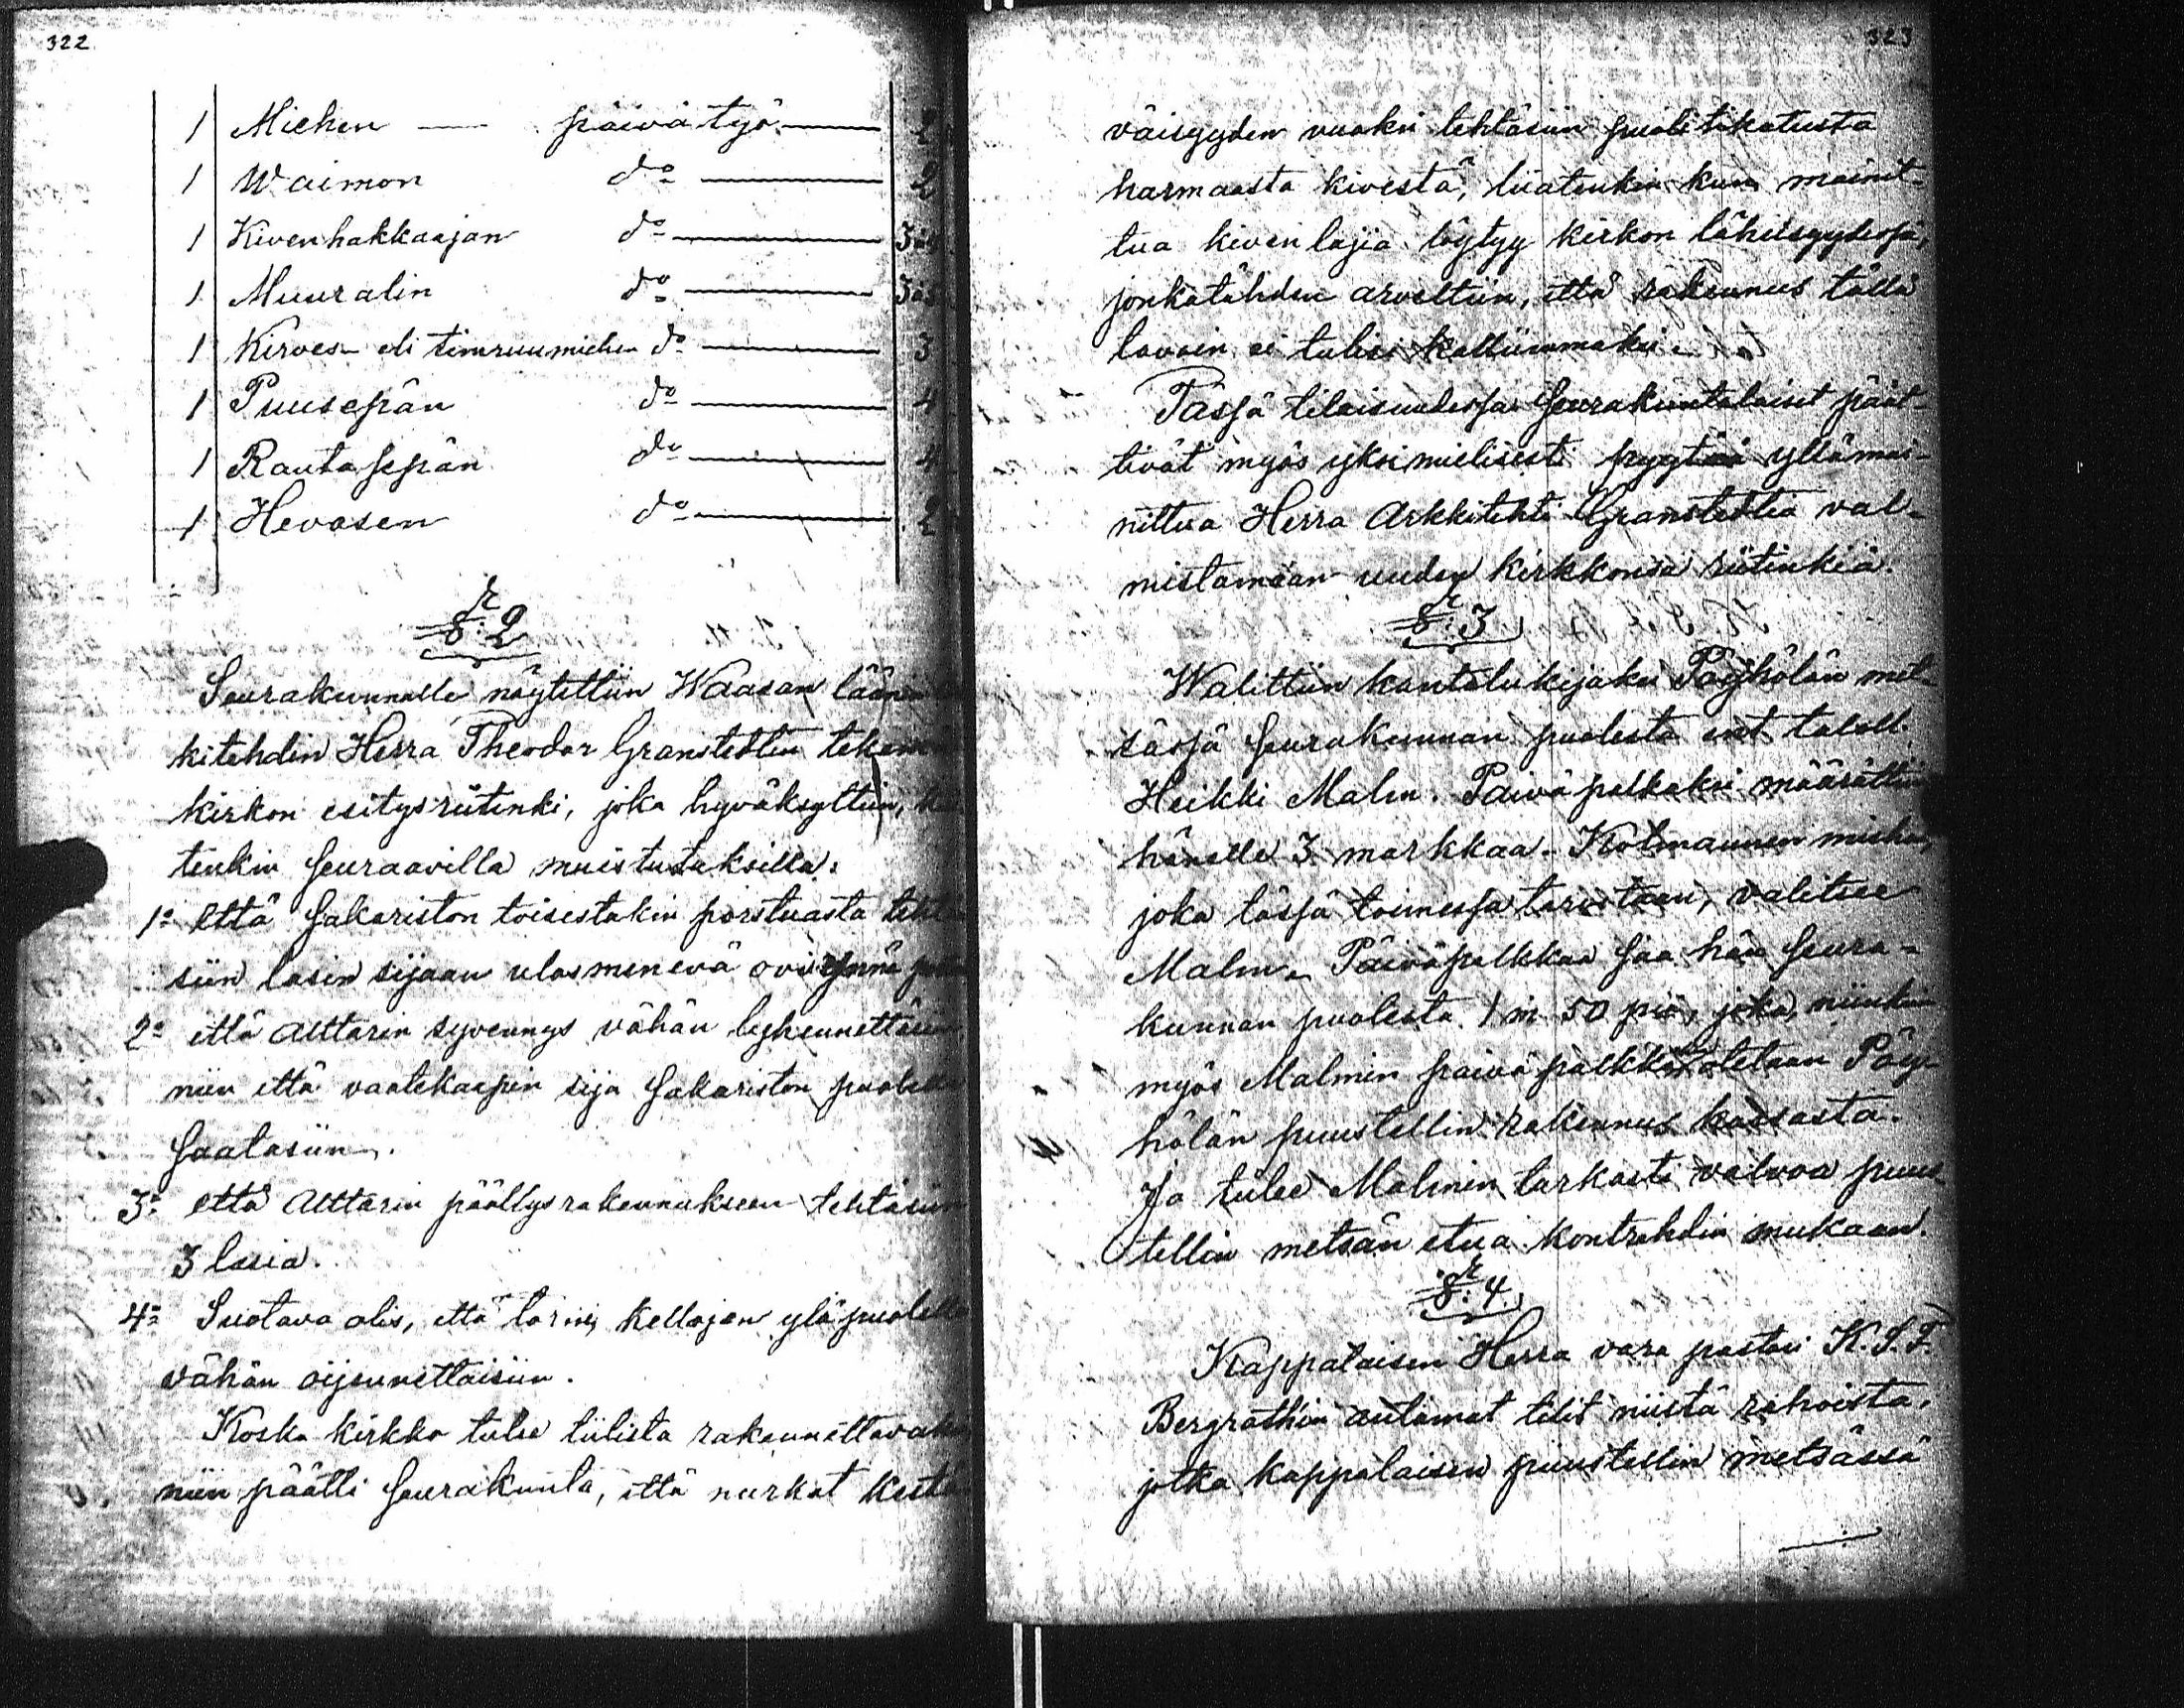 322
1 Miehen — päivätyö — 2
1 Waimon do — 2
1 Kivenhakkaajan do —
1 Muuralin do —
1 Kirves- eli timruumiehen do — 3
1 Puusepän do — 4
1 Rautasepän do — 4
1 Hevosen do — 2
§: 2
Seurakunnalle näytettiin Waasan lään
kitehdin Herra Theodor Granstedtin tekem
kirkon esitysriitinki, joka hyväksyttiin,
tenkin seuraavilla muistutuksilla:
1o Että Sakariston toisestakin porstuasta teht
siin lasin sijaan ulosmenevä ovi ynnä
2o että Alttarin syvennys vähän lyhennettäsi
niin että vaatekaapin sija Sakariston puolel
saatasiin.
3o että Alttarin päällysrakennukseen tehtäsii
3 lasia.
4o Suotava olis, että torni kellojen yläpuolel
vähän oijennettaisiin.
Koska kirkko tulee tiilista rakennettavak
niin päätti Seurakunta, että nurkat kestä
323
väisyyden vuoksi tehtäsiin puolitikatusta
harmaasta kivestä, liiatenkin kun mainit-
tua kiven lajia löytyy kirkon läheisyydessä,
jonkatähden arveltiin, että rakennus tällä
lavoin ei tulisi kalliimmaksi.
Tässä tilaisuudessa Seurakuntalaiset päät-
tivät myös yksimielisesti pyytää yllämai-
nittua Herra Arkkitehti Granstedtia val-
mistamaan uuden kirkkonsa riitinkiä.
§: 3
Walittiin kantolukijaksi Pöyhölän met-
sässä Seurakunnan puolesta ent. taloll.
Heikki Malm. Päiväpalkaksi määrättiin
hänelle 3 markkaa. Kolmannen miehen,
joka tässä toimessa tarvitaan, valitsee
Malm. Päiväpalkkaa saa hän seura-
kunnan puolesta 1 m 50 piä, joka, niinkuin
myös Malmin päiväpalkka otetaan Pöy-
hölän puustellin rakennus kassasta.
Ja tulee Malmin tarkasti valvoa puus-
tellin metsän etua kontrahdin mukaan.
§: 4
Kappalaisen Herra vara pastori K. J. F.
Bergrothin antamat tilit niistä rahoista,
jotka kappalaisen puustellin metsässä